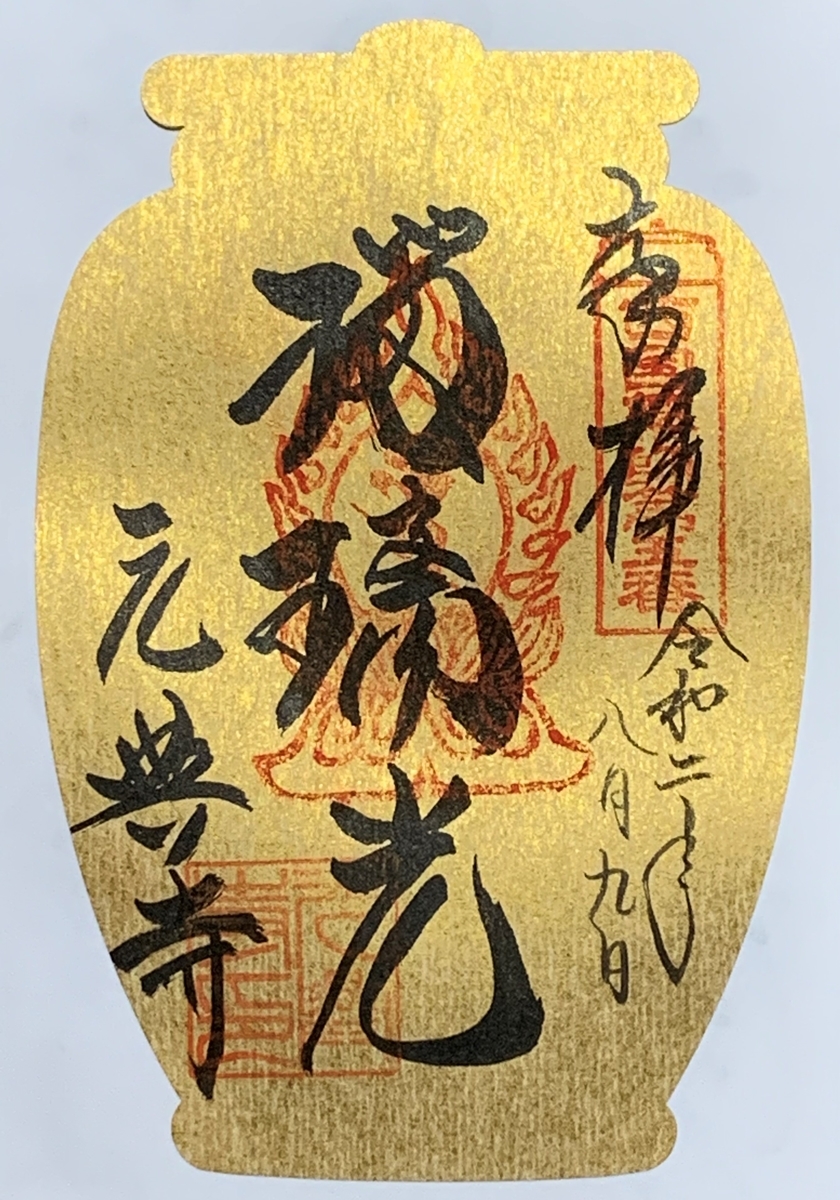 奉拝
令和二年
八月九日
瑠璃光
元興寺